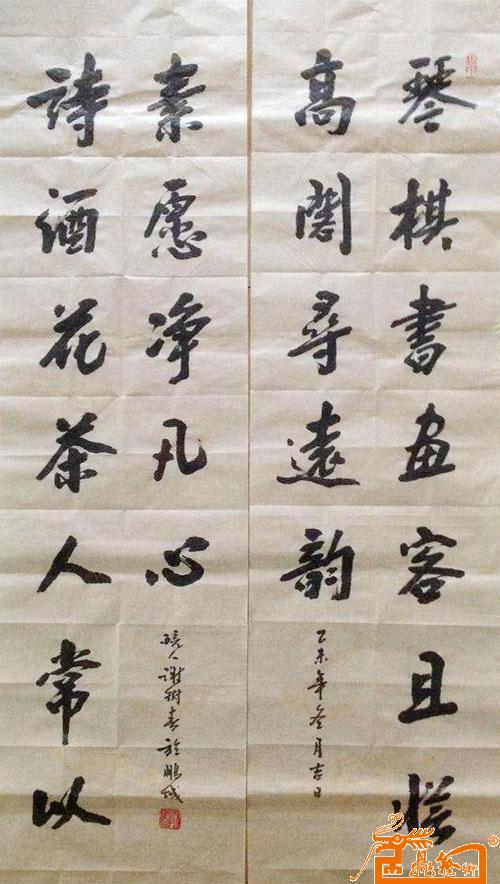 琴棋書画客且将
高閣尋遠韵
乙未年冬月吉日
詩酒花茶人常以
素愿净凡心
人謝樹春於鵬城